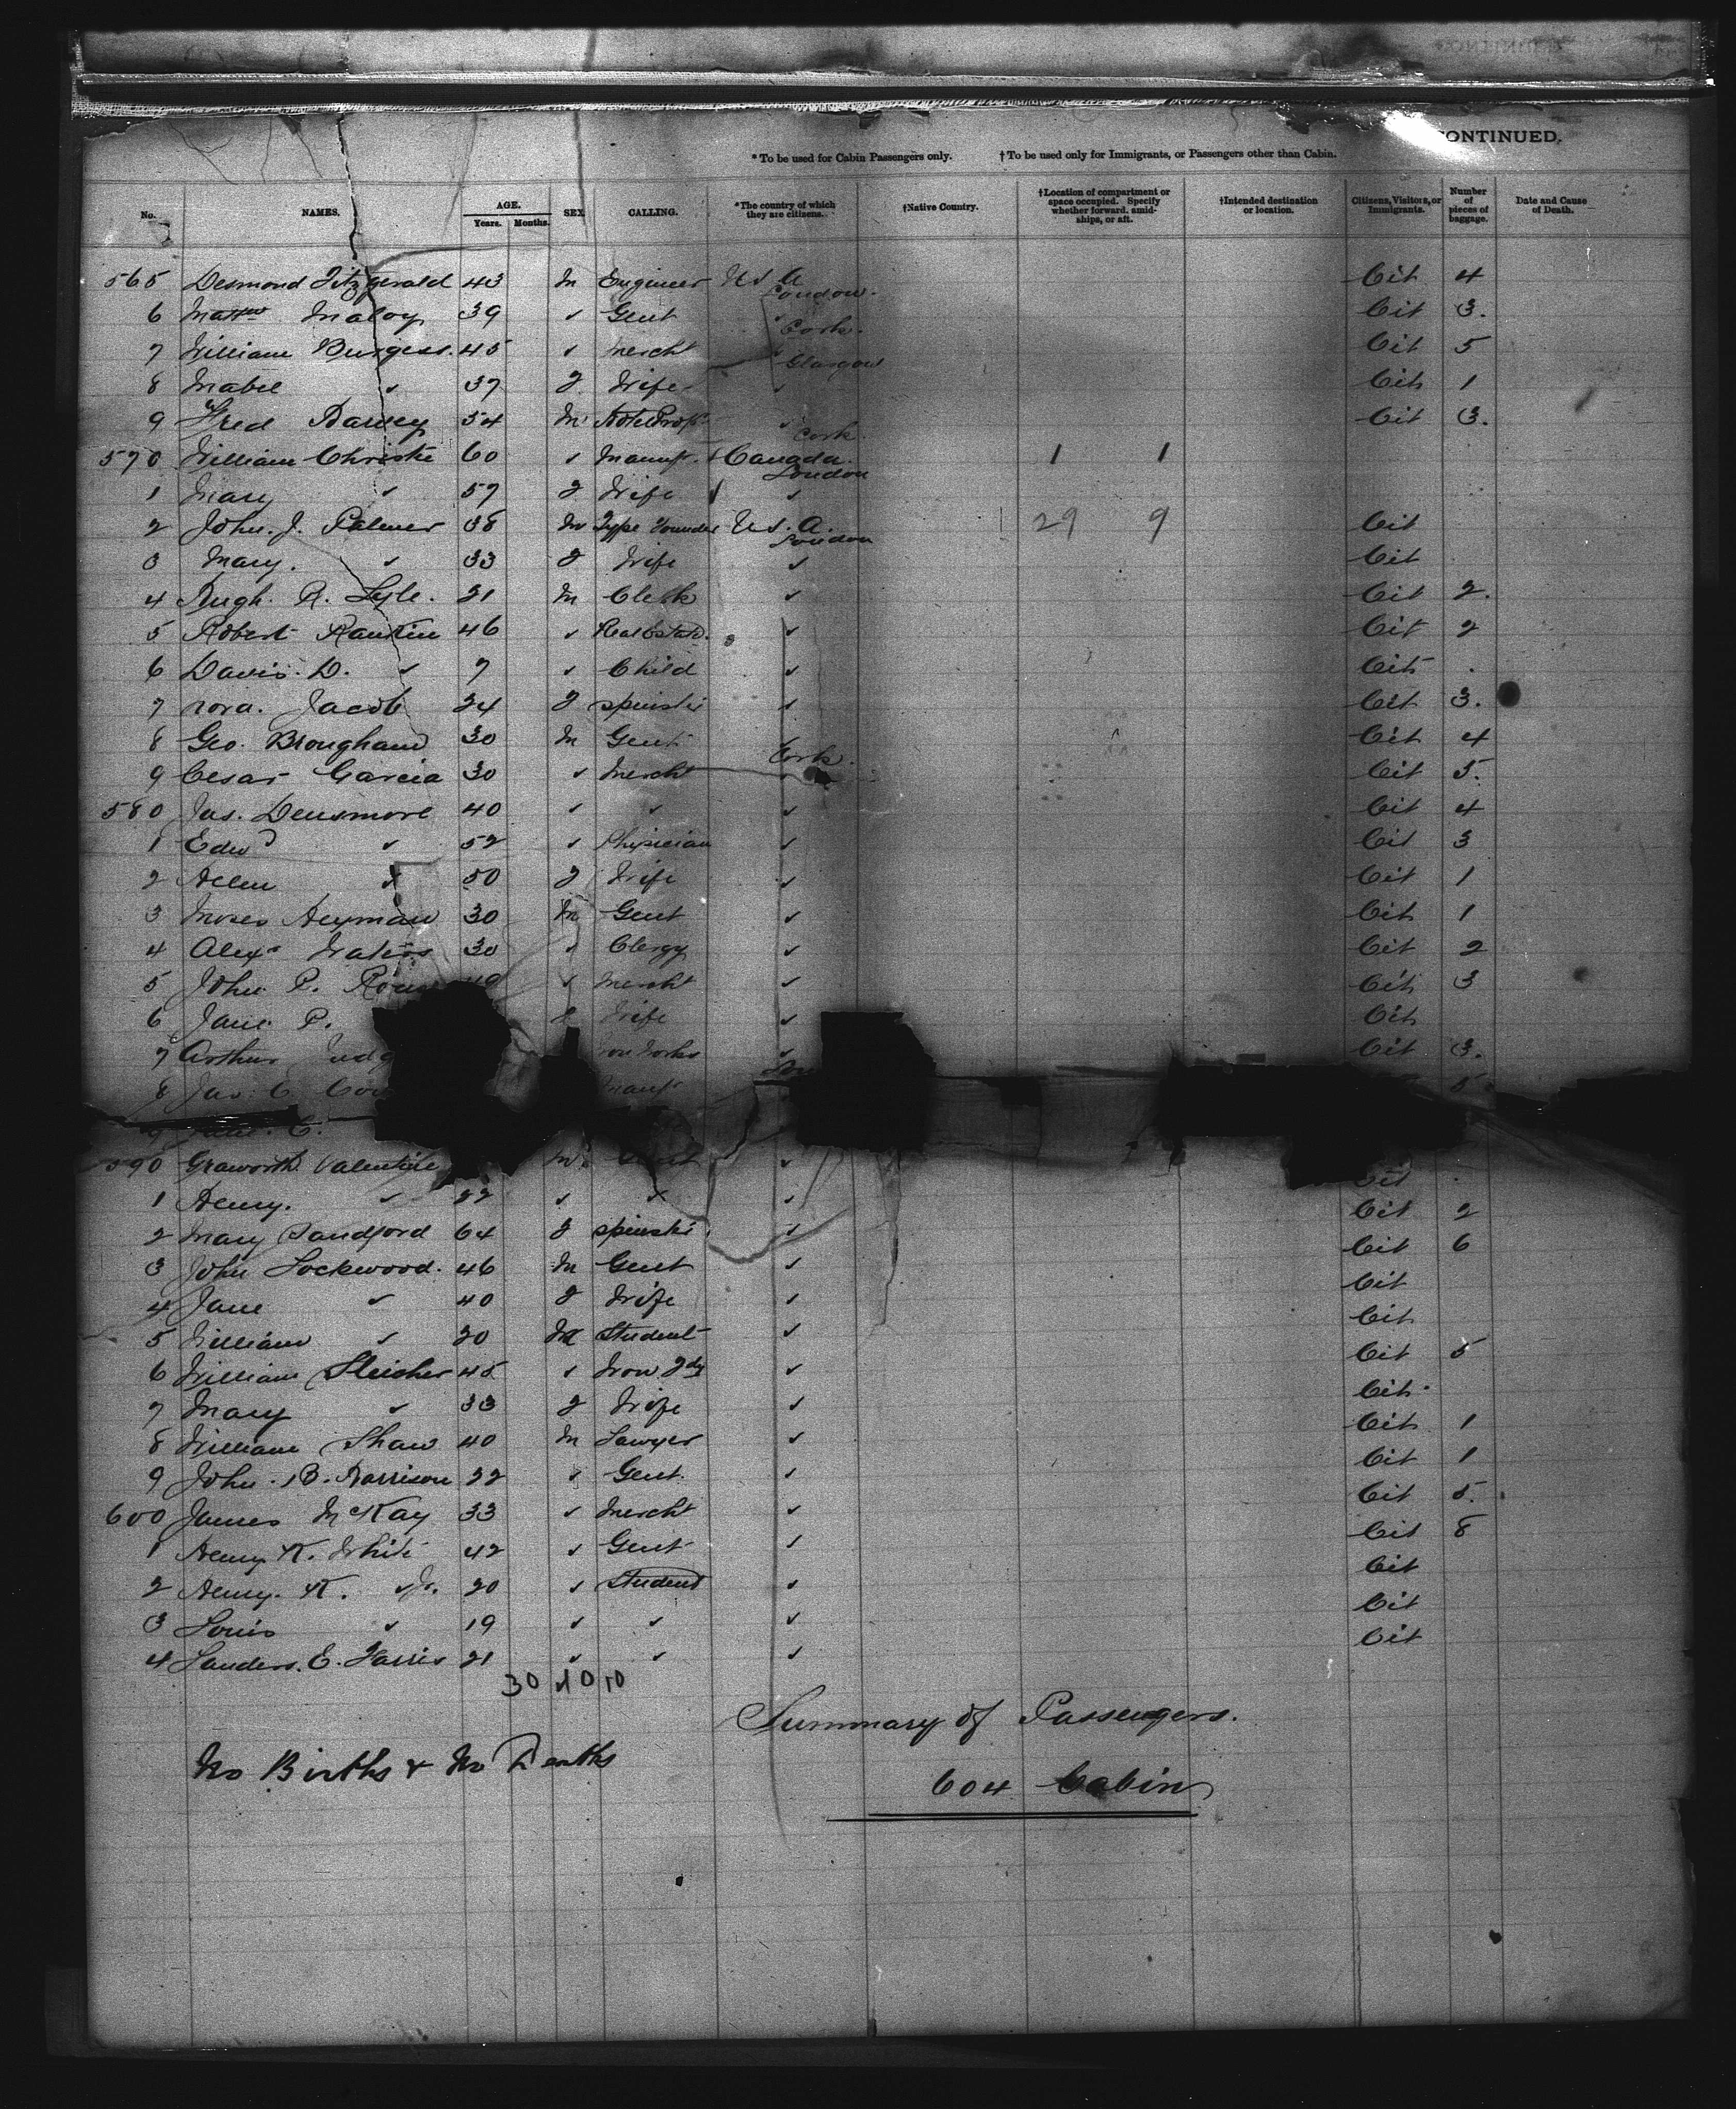 CONTINUED.
*To be used for Cabin Passengers only. †To be used only for Immigrants, or Passengers other than Cabin.
No. NAMES. AGE. Years. Months. SEX. CALLING. *The country of which they are citizens. †Native Country. †Location of compartment or space occupied. Specify whether forward, amidships, or aft. †Intended destination or location. Citizens, Visitors, or Immigrants. Number of pieces of baggage. Date and Cause of Death.
565 Desmond Fitzgerald 43 M Engineer U S A London. Cit 4
6 Mattw Maloy 39 ✓ Gent ✓ Cork. Cit 3.
7 William Burgess. 45 ✓ Mercht ✓ Glasgow Cit 5
8 Mabel ✓ 37 F Wife ✓ Cit 1
9 Fred 54 M ✓ Cork Cit 3.
570 William Christie 60 ✓ Manuf. Canada. London 1 1
1 Mary ✓ 57 F Wife ✓
2 John. J. Palmer 38 M Type Founder U S. A. London 29 9 Cit
3 Mary. ✓ 33 F Wife ✓ Cit
4 Hugh. R. Lyle. 21 M Clerk ✓ Cit 2.
5 Robert Rankin 46 ✓ Real Estate. ✓ Cit 2
6 Davis. D. ✓ 7 ✓ Child ✓ Cit
7 Nora. Jacob 24 F Spinster ✓ Cit 3.
8 Geo. Brougham 30 M Gent Cork. Cit 4
9 Cesar Garcia 30 ✓ Mercht Cit 5.
580 Jas. Densmore 40 ✓ ✓ ✓ Cit 4
1 Edwd ✓ 52 ✓ Physician ✓ Cit 3
2 Helen ✓ 50 F Wife ✓ Cit 1
3 Moses Heyman 30 M Gent ✓ Cit 1
4 Alexr Waters 30 ✓ Clergy ✓ Cit 2
5 John P. ✓ Mercht ✓ Cit 3
6 Jane P. F Wife ✓ Cit
7 Arthur ✓ Cit 3.
8 Jas. C. Manuf 5
9 C.
590 Graworth Valentine M ✓ Cit
1 Henry. ✓ 22 ✓ ✓ ✓ Cit 2
2 Mary Sandford 64 F Spinster ✓ Cit 6
3 John Lockwood. 46 M Gent ✓ Cit
4 Jane ✓ 40 F Wife ✓ Cit
5 William ✓ 20 M Student ✓ Cit 5
6 William Sleicher 45 ✓ Iron Fdy ✓ Cit
7 Mary ✓ 33 F Wife ✓ Cit 1
8 William Shaw 40 M Lawyer ✓ Cit 1
9 John. B. Harrison 22 ✓ Gent. ✓ Cit 5.
600 James McKay 33 ✓ Mercht ✓ Cit 8
1 Henry K. White 42 ✓ Gent ✓ Cit
2 Henry. K. ✓ Jr. 20 ✓ Student ✓ Cit
3 Louis ✓ 19 ✓ ✓ ✓ Cit
4 Sanders. E. Harris 21 ✓ ✓ ✓
30 10 10
Summary of Passengers.
No Births & No Deaths
604 Cabin